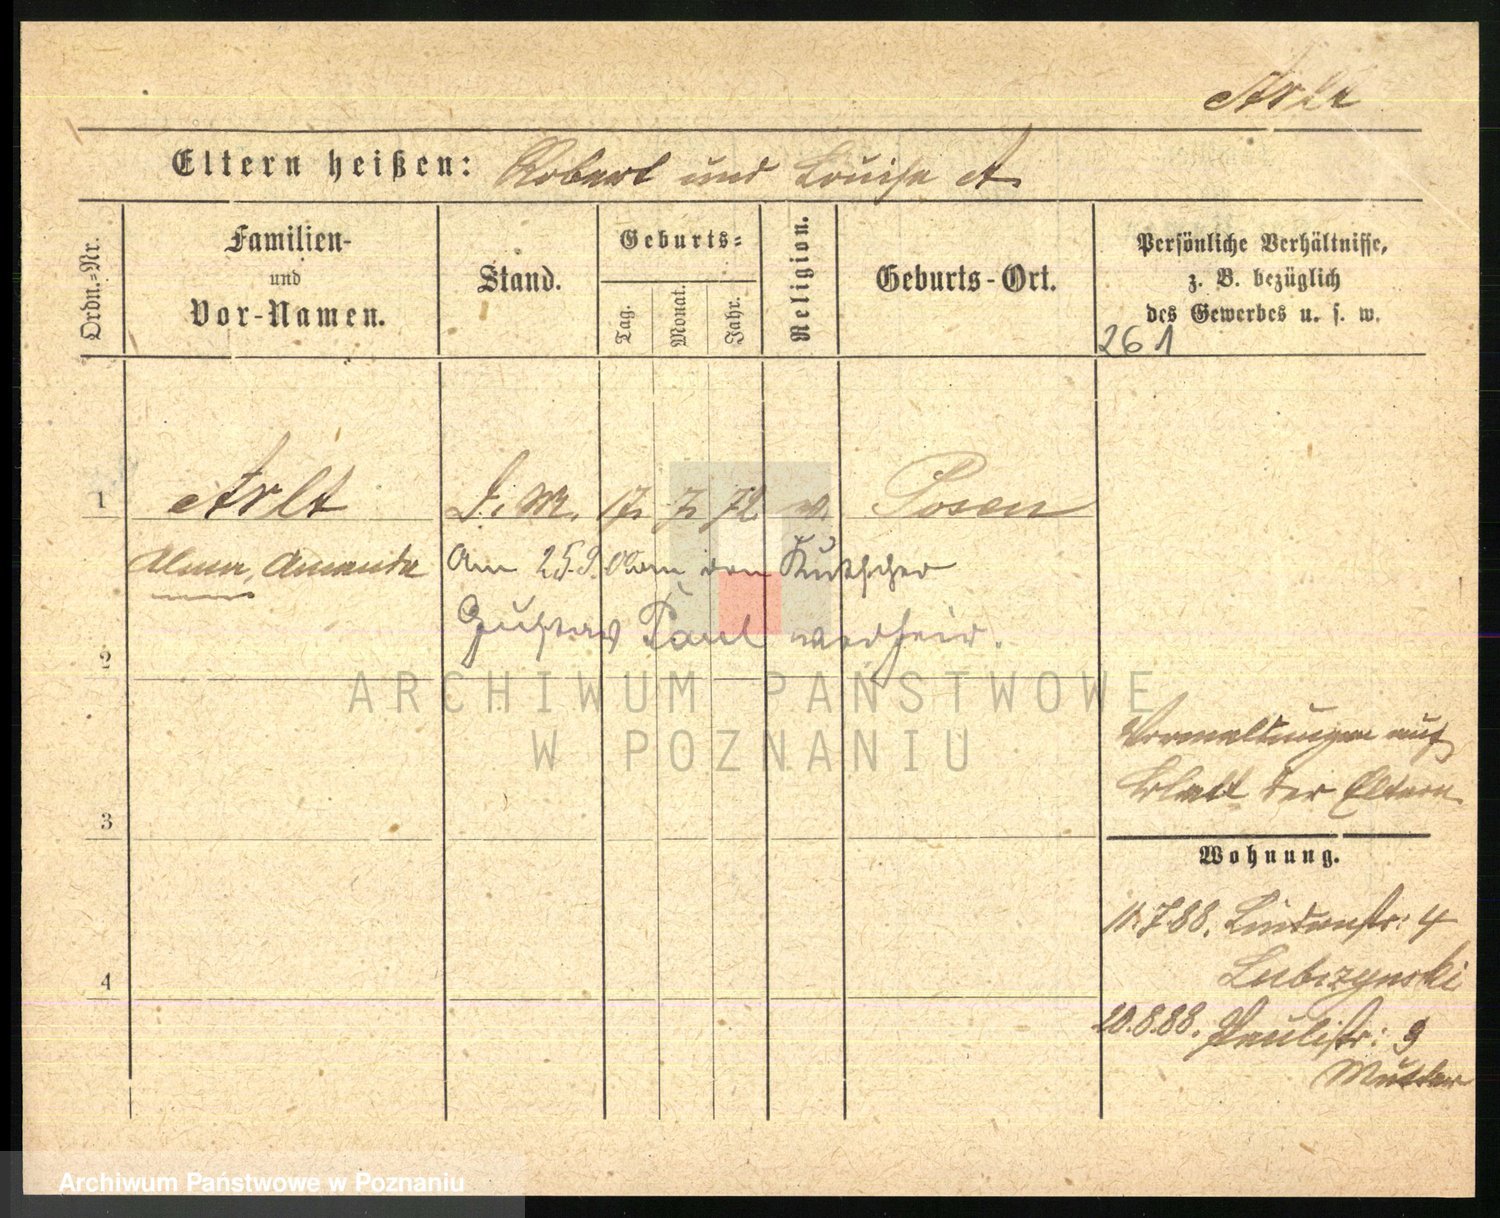 Arlt
Eltern heißen: Robert und Louise A.
Ordn.-Nr.
Familien-
und
Vor-Namen.
Stand.
Geburts-
Tag.
Monat.
Jahr.
Religion.
Geburts-Ort.
Persönliche Verhältnisse,
z. B. bezüglich
des Gewerbes u. s. w.
261
1 Arlt D. M. 17. 7. 72. Posen
Alma, Amanda
Am 25.9.00 an den Kutscher
Gustav Paul verheir.
2
ARCHIWUM PAŃSTWOWE
W POZNANIU
Vormeldungen auf
Blatt der Eltern
3
Wohnung.
11.7.88. Lindenstr: 4
Lubczynski
4
20.8.88. Paulistr: 9
Mutter
Archiwum Państwowe w Poznaniu